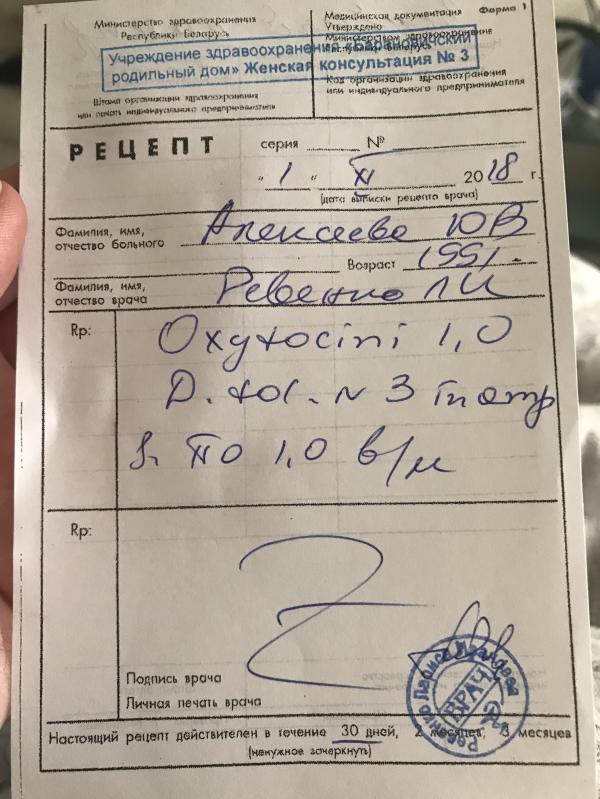 Министерство здравоохранения
Республики Беларусь
Медицинская документация Форма 1
Утверждено
Министерством здравоохранения
Республики Беларусь
Учреждение здравоохранения
родильный дом» Женская консультация № 3
Штамп организации здравоохранения
или печать индивидуального предпринимателя
Код организации здравоохранения
или индивидуального предпринимателя
РЕЦЕПТ серия № 
" 1 " XI 2018 г.
(дата выписки рецепта врача)
Фамилия, имя,
отчество больного Алексеева ЮВ
Возраст 1991.
Фамилия, имя,
отчество врача Ревенко ЛИ
Rp: Oxytocini 1,0
D. td. N 3 in amp
S. по 1,0 в/м
Rp:
Подпись врача
Личная печать врача
ВРАЧ
Настоящий рецепт действителен в течение 30 дней, 2 месяцев, 3 месяцев
(ненужное зачеркнуть)